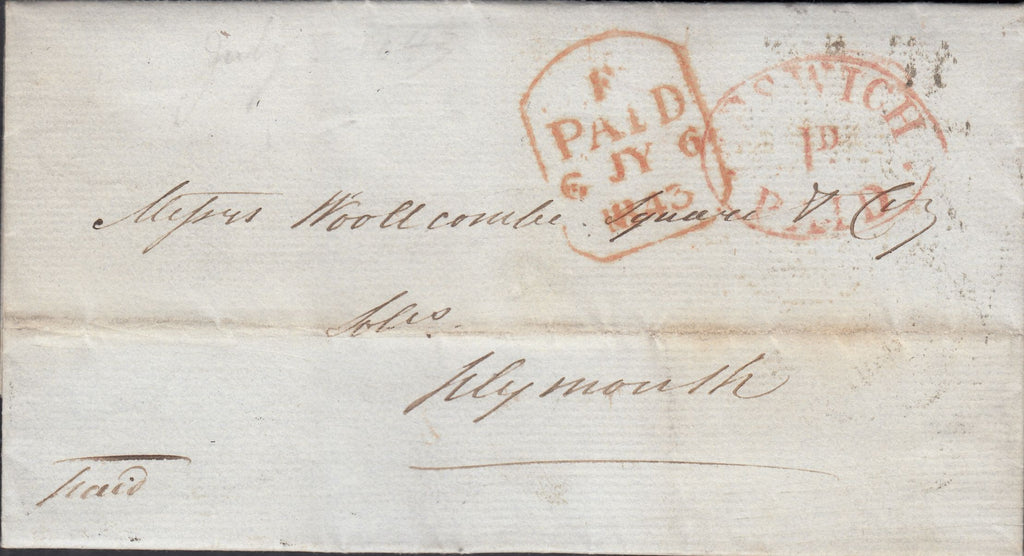 July
F
PAID
G JY 6
1843
IPSWICH
1D
PAID
Messrs Woollcombe Square & Co
Solrs
Plymouth
Paid